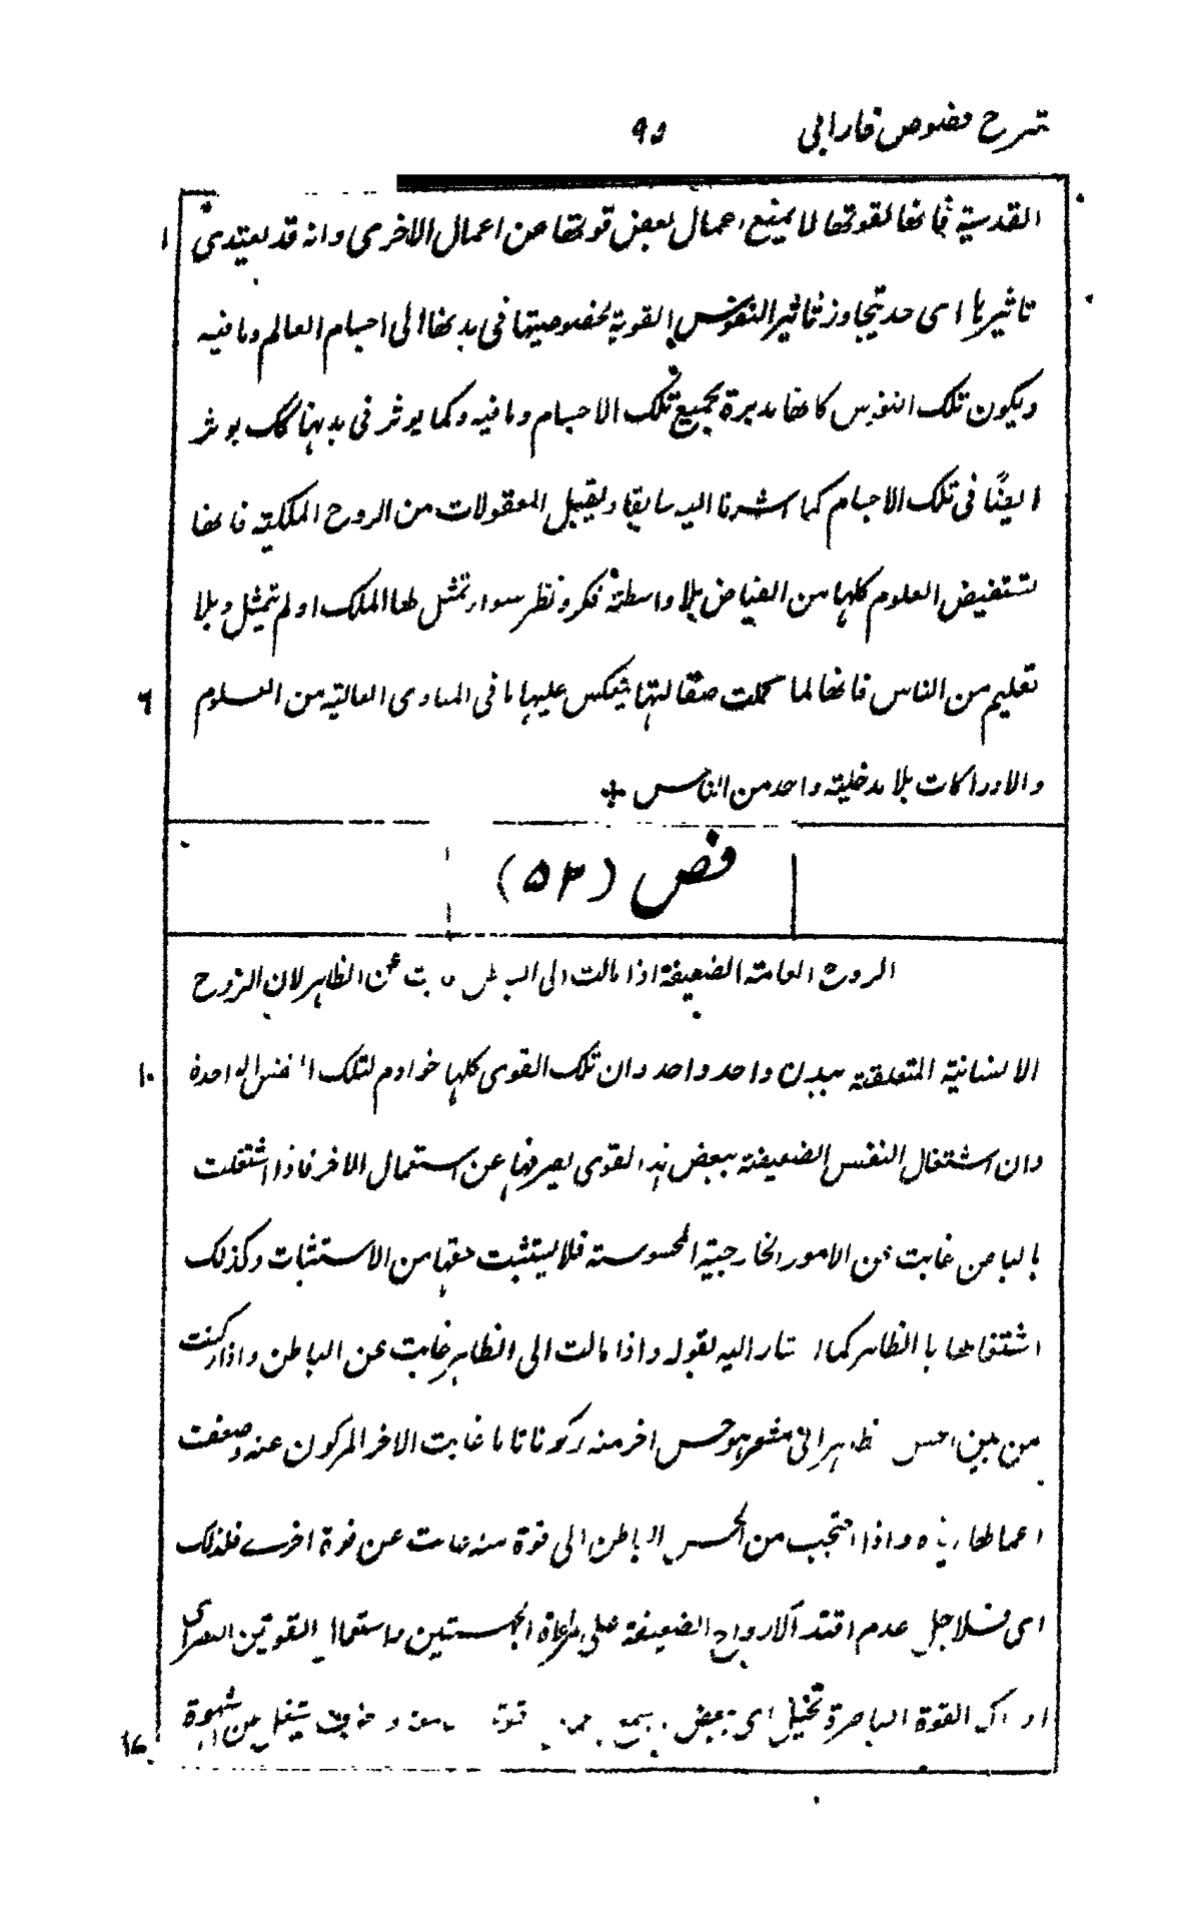 شرح فصوص فارابی ٩٥
القدسية فانها لقوتها لا يمنع اعمال بعض قوتها عن اعمال الاخرى وانه قد يعتدى ١
تاثيرها اى حد يتجاوز تاثير النفوس القوية لخصوصيتها فى بدنها الى اجسام العالم وما فيه
ويكون تلك النفوس كانها مدبرة لجميع تلك الاجسام وما فيه وكما يوثر فى بدنها كك يوثر
ايضًا فى تلك الاجسام كما اشرنا اليه سابقا ويقبل المعقولات من الروح الملكية فانها
تستفيض العلوم كلها من الفياض بلا واسطة فكر ونظر سواء تمثل لها الملك او لم يتمثل وبلا
تعليم من الناس فانها لما كملت صقالتها ينعكس عليها ما فى المبادى العالية من العلوم ٦
والادراكات بلا مدخلية واحد من الناس +
فص (٥٣)
الروح العامة الضعيفة اذا مالت الى الباطن غابت عن الظاهر لان الروح
الانسانية المتعلقة ببدن واحد واحد وان تلك القوى كلها خوادم لتلك النفس الواحدة ١٠
وان اشتغال النفس الضعيفة ببعض هذه القوى يصرفها عن استعمال الاخر فاذا اشتغلت
بالباطن غابت عن الامور الخارجية المحسوسة فلا يستثبت حقها من الاستثبات وكذلك
اشتغالها بالظاهر كما اشار اليه بقوله واذا مالت الى الظاهر غابت عن الباطن واذا ركنت
من بين الحس ظاهر الى مشعر هو حس اخر منه ركونا تاما غابت الاخر المركون عنه وضعفت
اعمالها واذا احتجب من الحس الباطن الى قوة منه غابت عن قوة اخرے فلذلك
اى فلاجل عدم اقتدار الارواح الضعيفة على مراعاة الجنستين واستعمال القوتين
القوة الباصرة تخيل اى بعض قوة